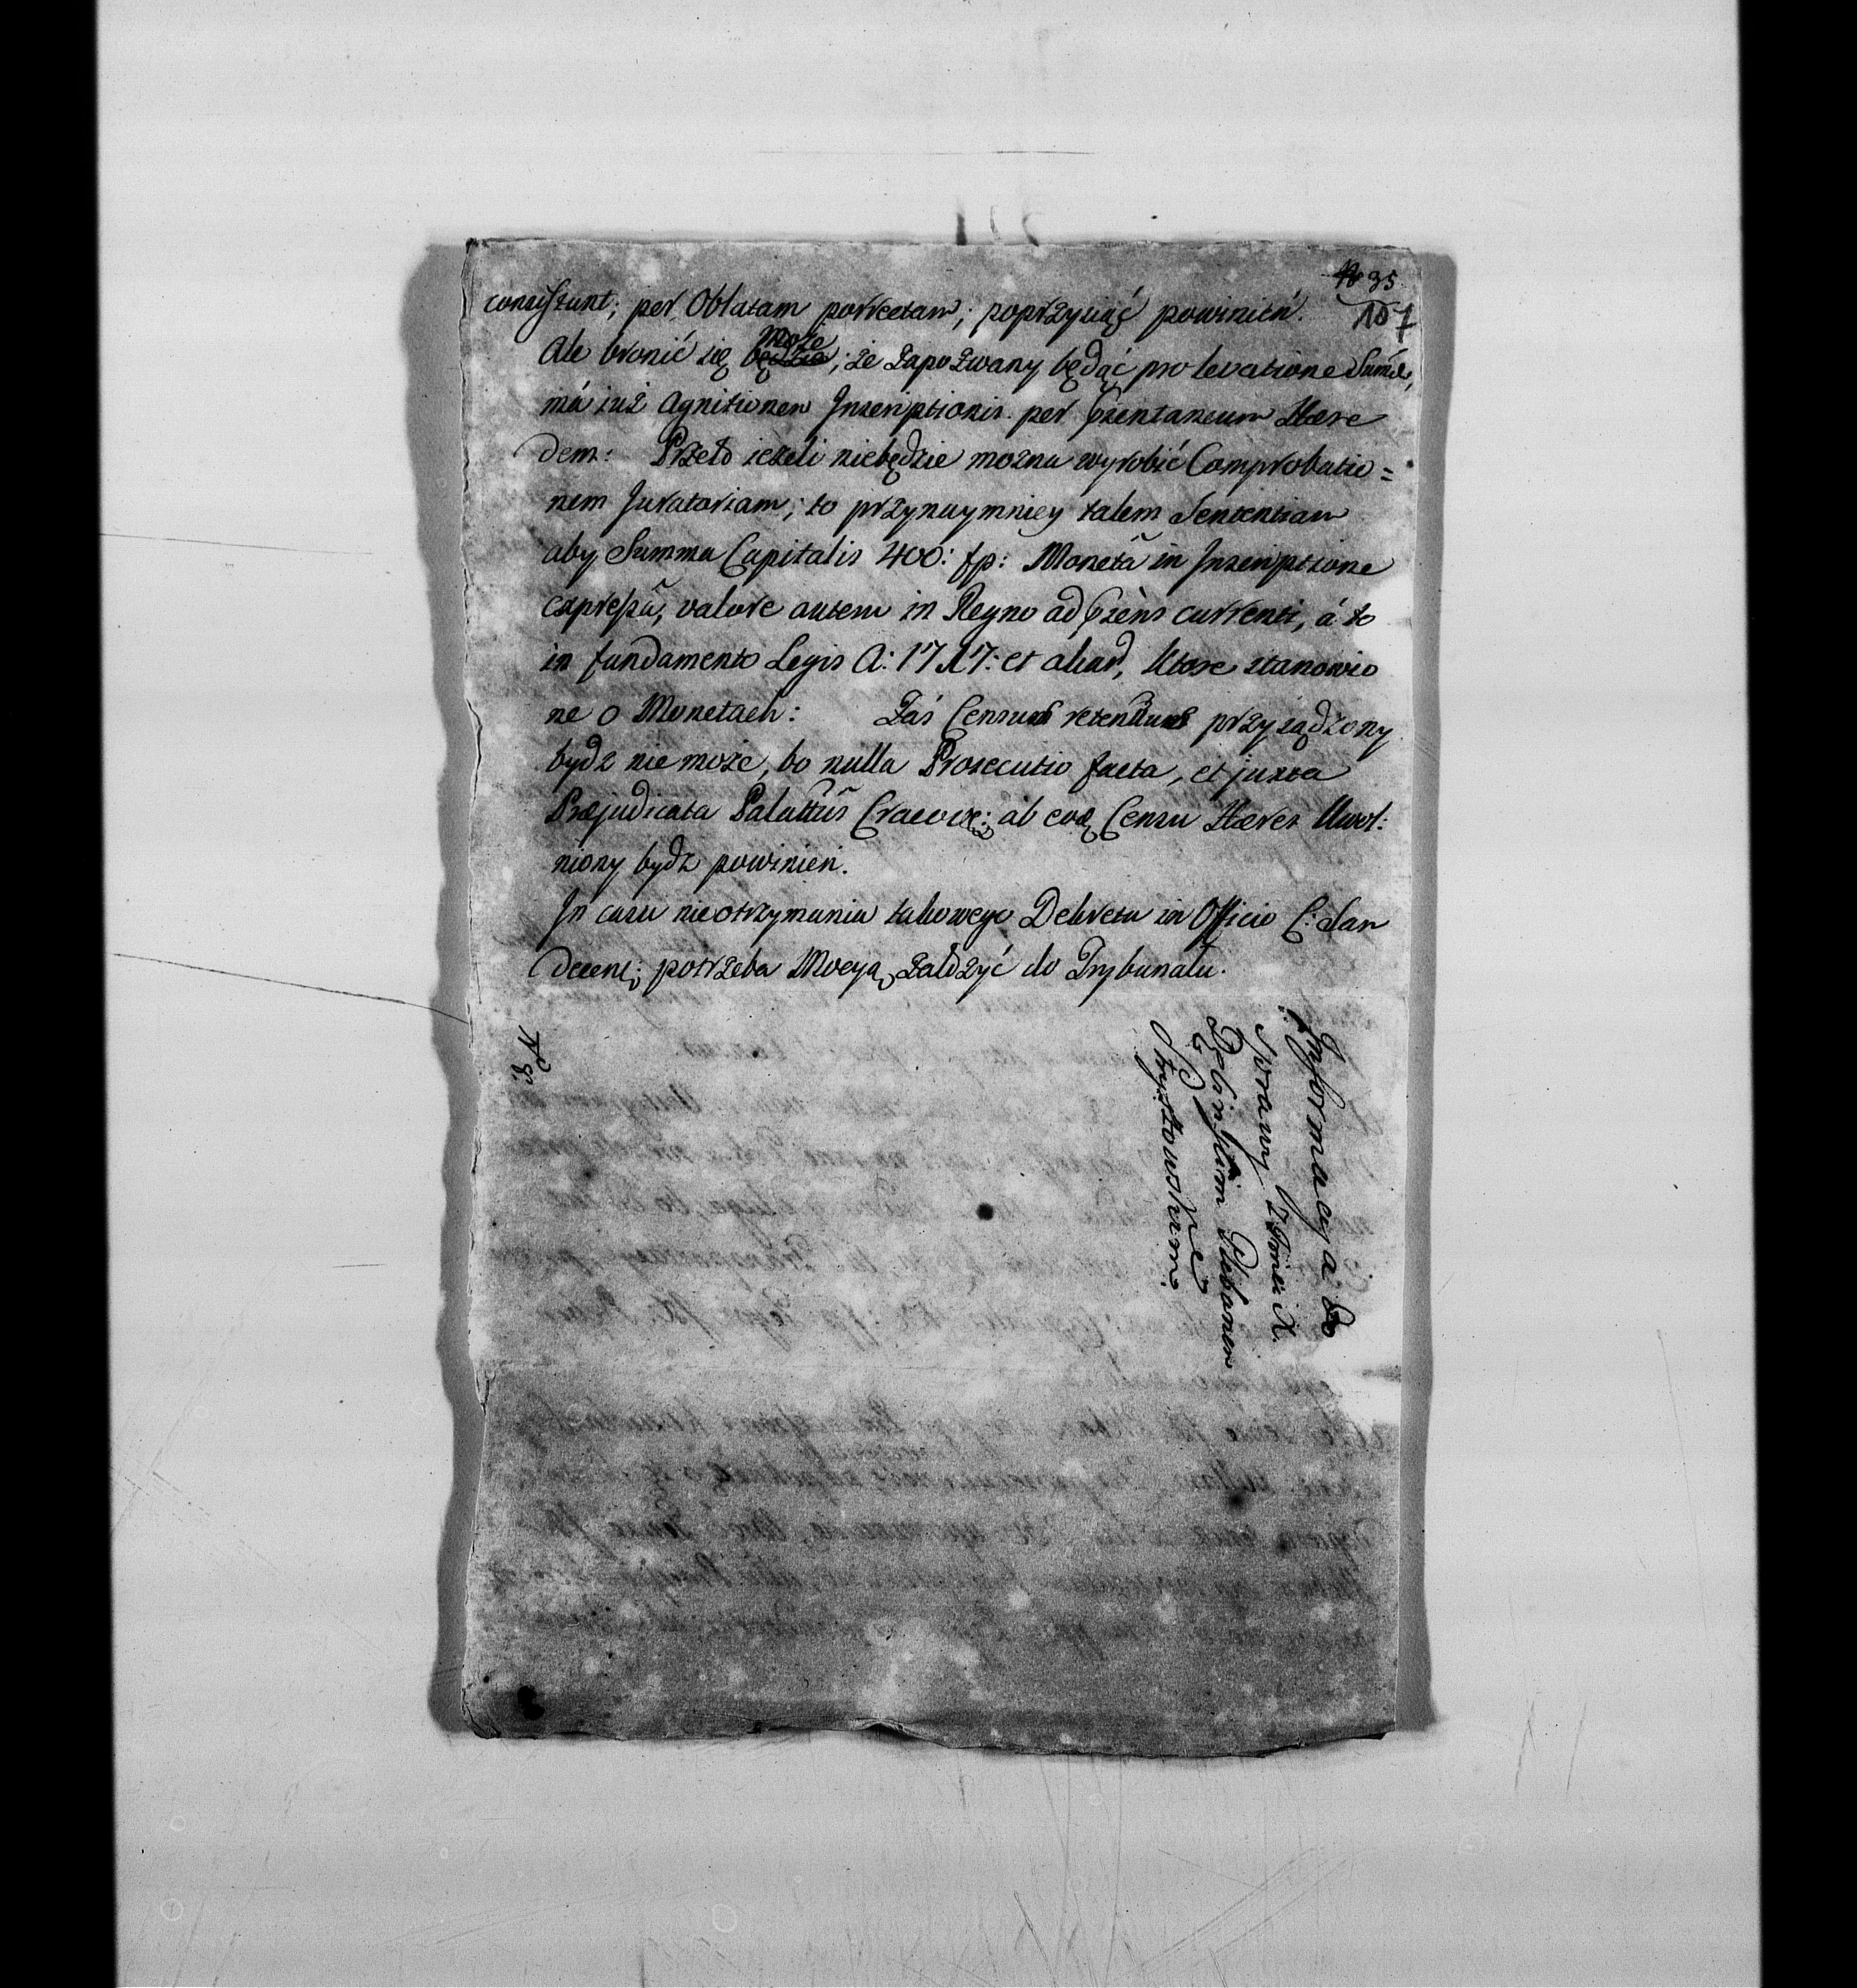 35
107
consistunt; per Oblatam porrectam; poprzysiąć powinień.
Ale bronić się będzie Może; że zapozwany będąć pro levatione Sumæ,
má iuż Agnitionem Inscriptionis per Pzentaneum Hære
dem: Przeto ieżeli niebędzie można wyrobić Comprobatio=
nem Juratoriam; to przynaymniey talem Sententiam
aby Summa Capitalis 400: fp: Monetã in Inscriptione
expressã, valore autem in Regno ad Pzèns currenti, á to
in fundamento Legis A: 1717: et aliar, ktore stanowio
ne o Monetach: Zás Census retentus przysądzony
bydz nie może, bo nulla Prosecutio facta, et juxta
Præjudicata Palattũs Cracov: ab Censu Hæres Uwol:
niony bydz powinień.
In casu nieotrzymania takowego Dekretu in Officio C: San
decen; potrzeba Mocyą założyć do Trybunału.
Informacya do
Sprawy z Jmci X.
Plebanem
Strzyżowskim.
N 8.